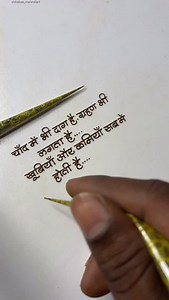 चाँद में भी दाग है, ग्रहण भी
लगता है....
खूबियाँ और कमियाँ सब में
होती है....